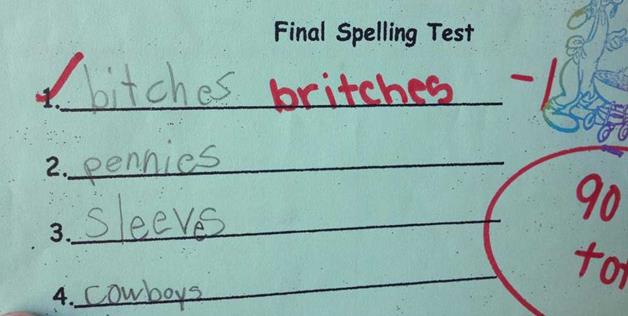 Final Spelling Test
1. bitches britches -1
2. pennies
3. sleeves
4. cowboys
90